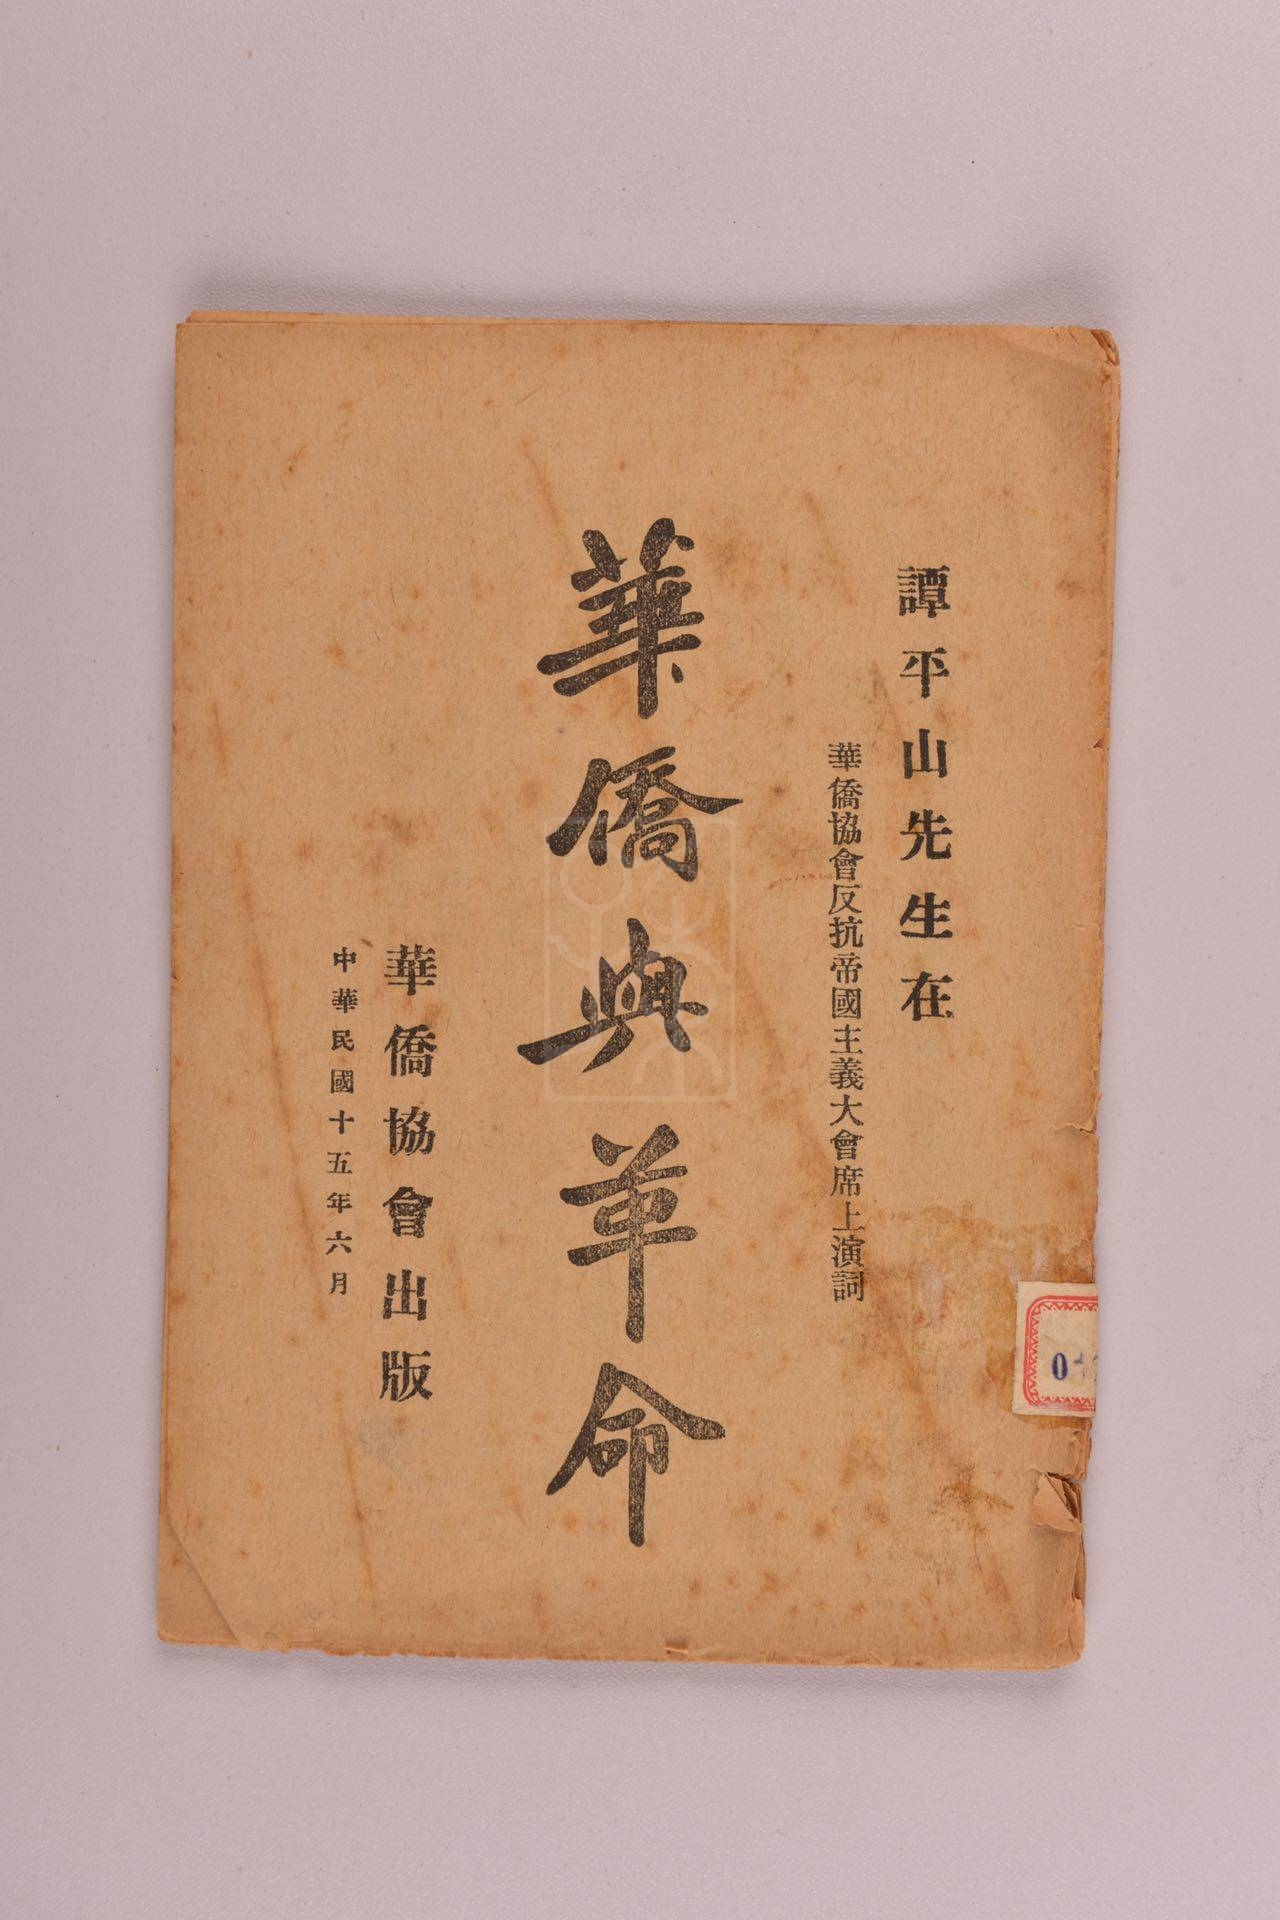 譚平山先生在
華僑協會反抗帝國主義大會席上演詞
華僑與革命
華僑協會出版
中華民國十五年六月
0